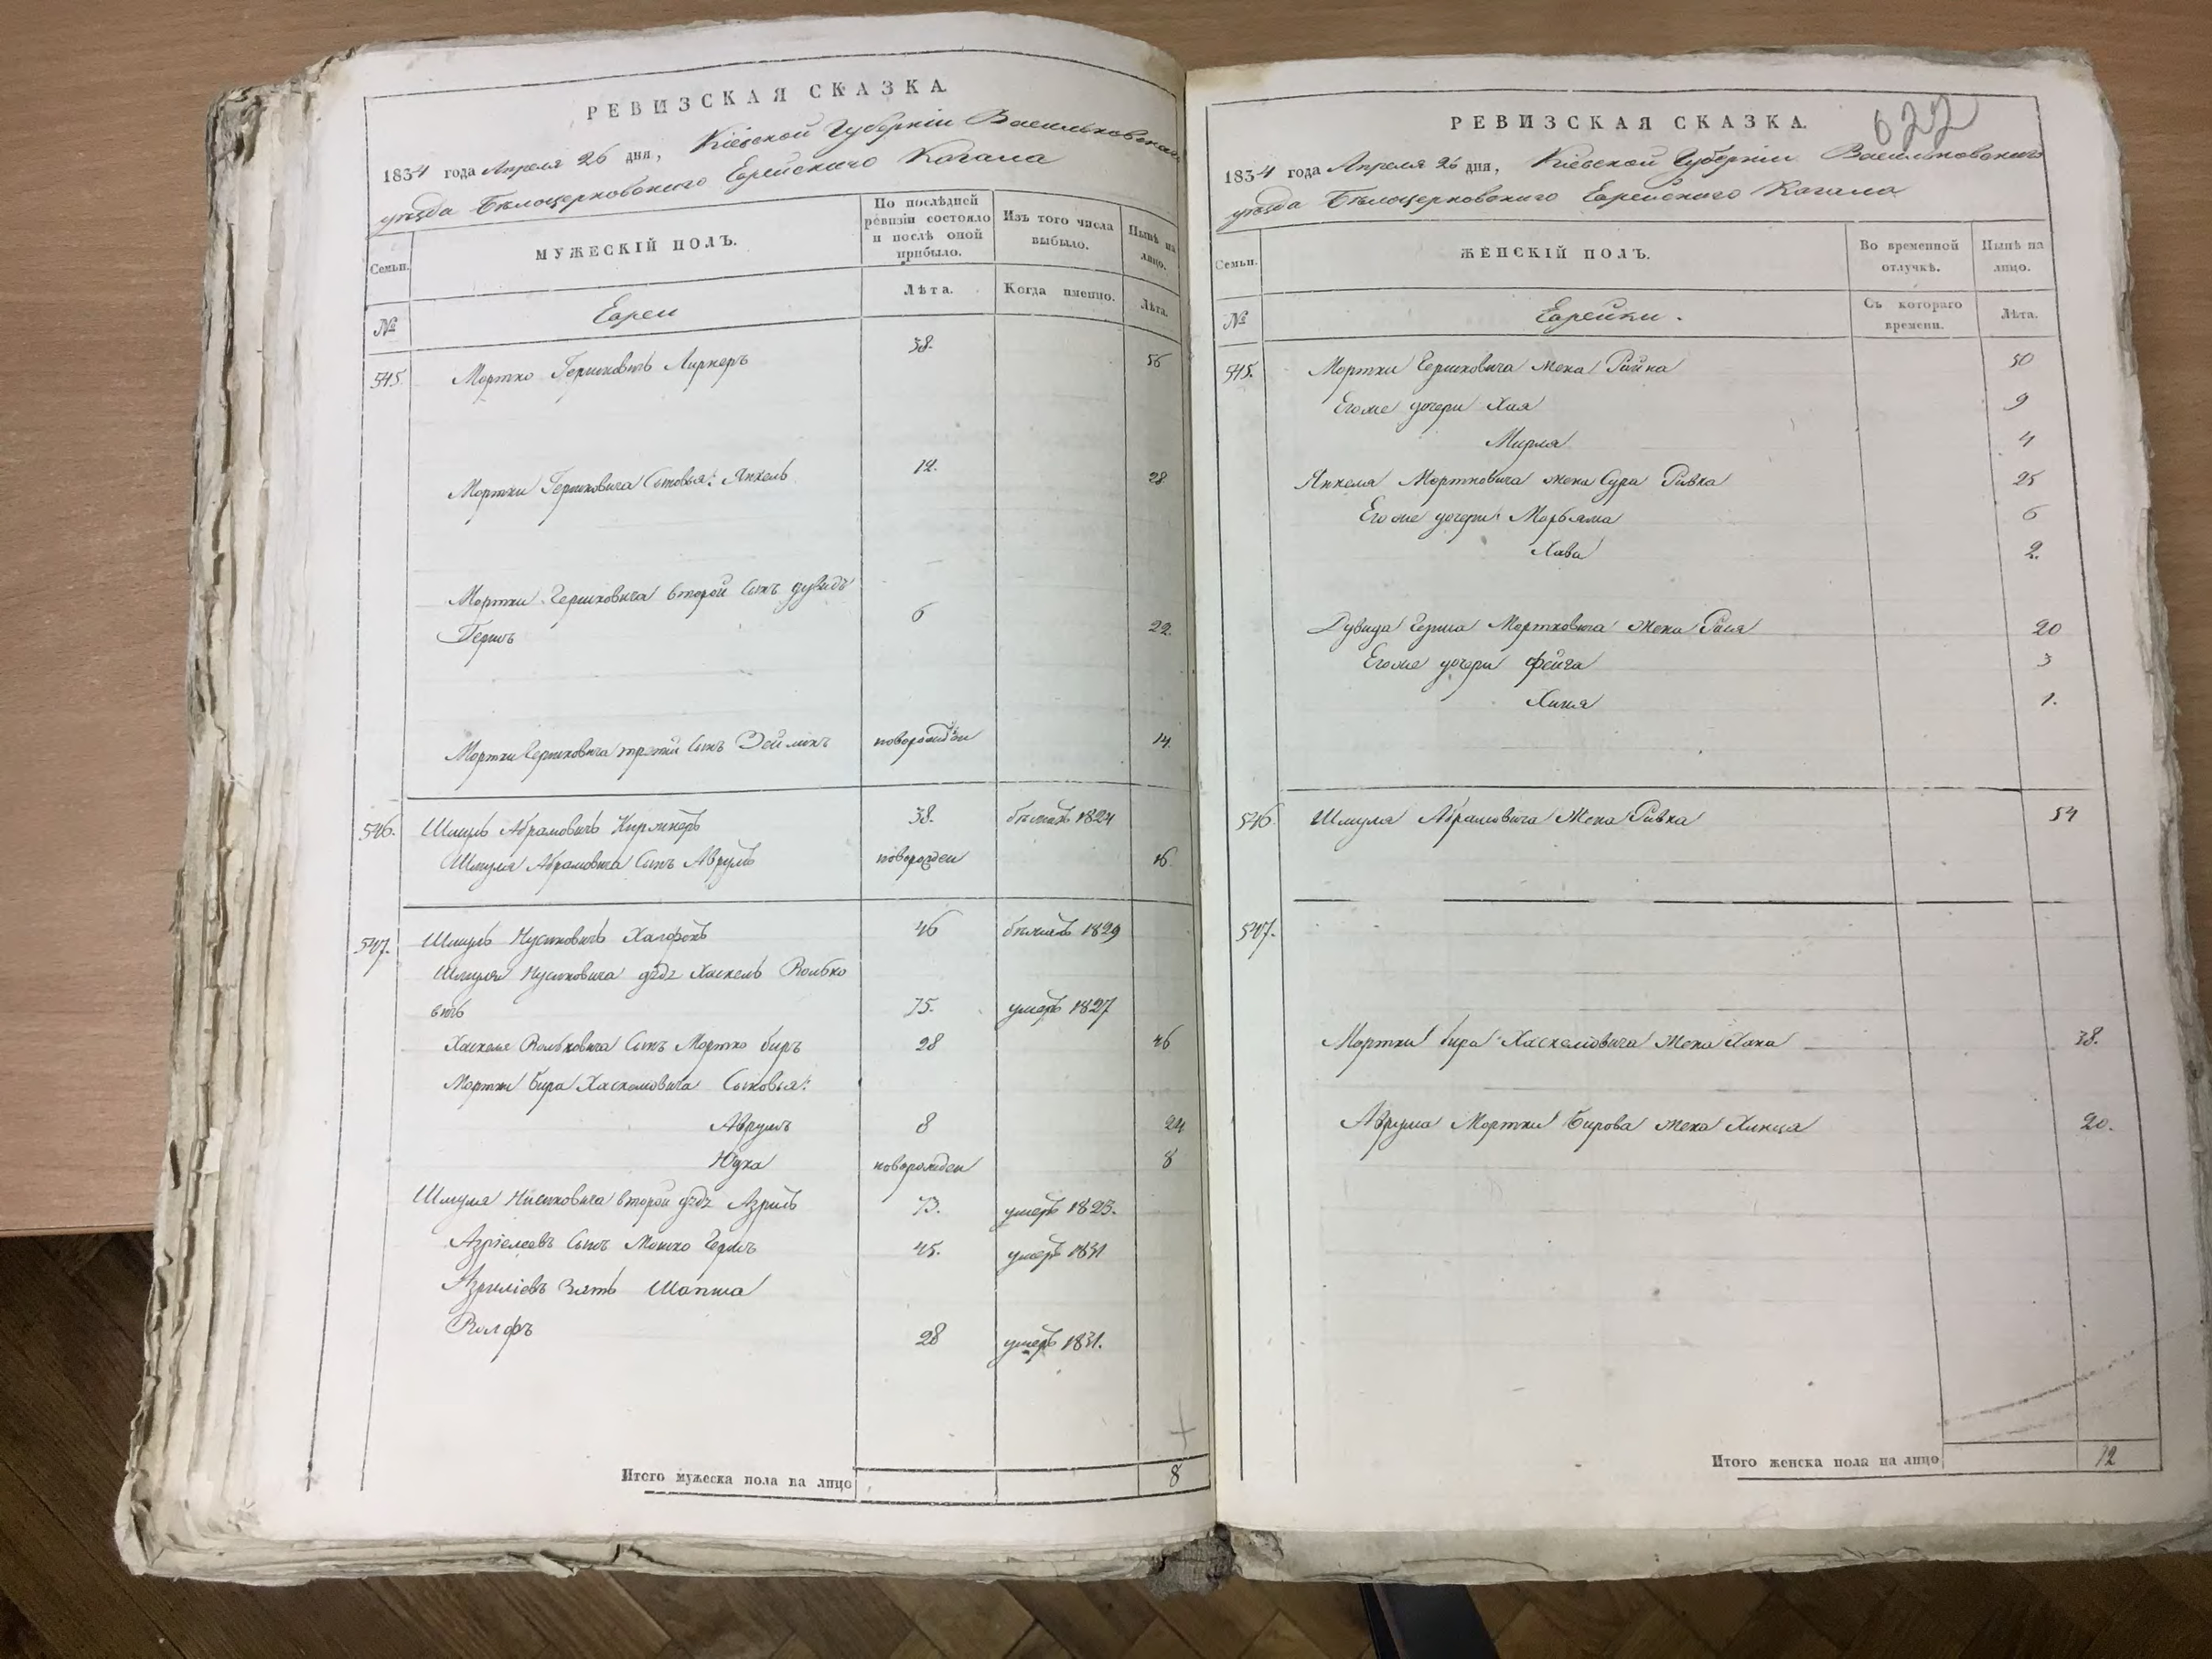 РЕВИЗСКАЯ СКАЗКА.
1834 года Апреля 26 дня, Кіевской Губерніи Васильковскаго
уѣзда Бѣлоцерковскаго Еврейскаго Кагала
Семьи.
МУЖЕСКІЙ ПОЛЪ.
По послѣдней ревизіи состояло и послѣ оной прибыло.
Изъ того числа выбыло.
Нынѣ на лицо.
№
Евреи
Лѣта.
Когда именно.
Лѣта.
545 Мортко Гершковичь Лирнеръ 38. 56
Мортки Гершковича Сыновья: Янкель 12. 28
Мортки Гершковича второй Сынъ Дувидъ
Гершъ 6 22.
Мортки Гершковича третій Сынъ Зейликъ новорожден 14.
546. Шмуль Абрамовичь 38. бѣжалъ 1824
Шмуля Абрамовича Сынъ Аврумъ новорожден 16.
547. Шмуль 46 бѣжалъ 1829
Шмуля дядя Хаскель Волько
вичь 75. умеръ 1827
Хаскеля Вольковича Сынъ Мортко Биръ 28 46
Мортки Бира Хаскелювича Сыновья:
Аврумъ 8 24
Юдка новорожден 8
Шмуля второй дядя Азриль 73. умеръ 1825.
Азріелевъ Сынъ Мошко Гершъ 45. умеръ 1831
Азриліевъ Зять Шапша
Волфъ 28 умеръ 1831.
Итого мужеска пола на лицо 8
622
РЕВИЗСКАЯ СКАЗКА.
1834 года Апреля 26 дня, Кіевской Губерніи Васильковскаго
уѣзда Бѣлоцерковскаго Еврейскаго Кагала
Семьи.
ЖЕНСКІЙ ПОЛЪ.
Во временной отлучкѣ.
Нынѣ на лицо.
№
Еврейки.
Съ котораго времени.
Лѣта.
545. Мортки Гершковича жена Рейна 50
Его же дочери Хая 9
Мирля 4
Янкеля Мортковича жена Сура Ривка 25
Его же дочери Марьяма 6
Хава 2.
Дувида Герша Мортковича жена Рася 20
Его же дочери Фейга 3
Хиня 1.
546 Шмуля Абрамовича Жена Ривка 54
547.
Мортки Бира Хаскелювича жена Хана 38.
Аврума Мортки Бирова жена Хинця 20.
Итого женска пола на лицо 12